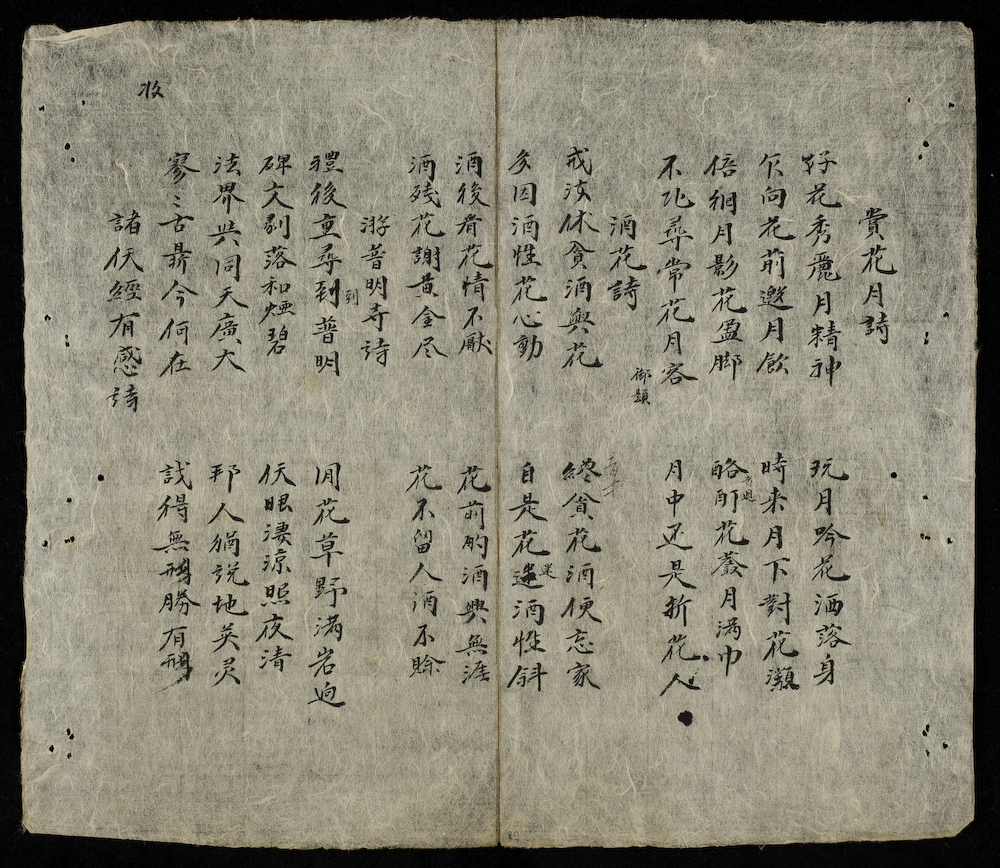 收
賞花月詩
好花秀麗月精神 玩月吟花洒落身
乍向花前邀月飲 時来月下對花瀕
倍徊月影花盈脚 酩酊花蔭月满巾
不比尋常花月容 月中还是折花人
酒花詩 御題
戒汝休貪酒與花 終貪花酒便忘家
多因酒性花心動 自是花迷酒性斜
酒後看花情不厭 花前酌酒興無涯
酒残花謝黄金尽 花不留人酒不賒
游普明寺詩
禮後重尋到普明 閑花草野满岩迥
碑文剥落和烟碧 仸眼淒涼照夜清
法界共同天廣大 邦人猶説地英灵
寥〻古鼎今何在 識得無形勝有形
諸仸經有感詩